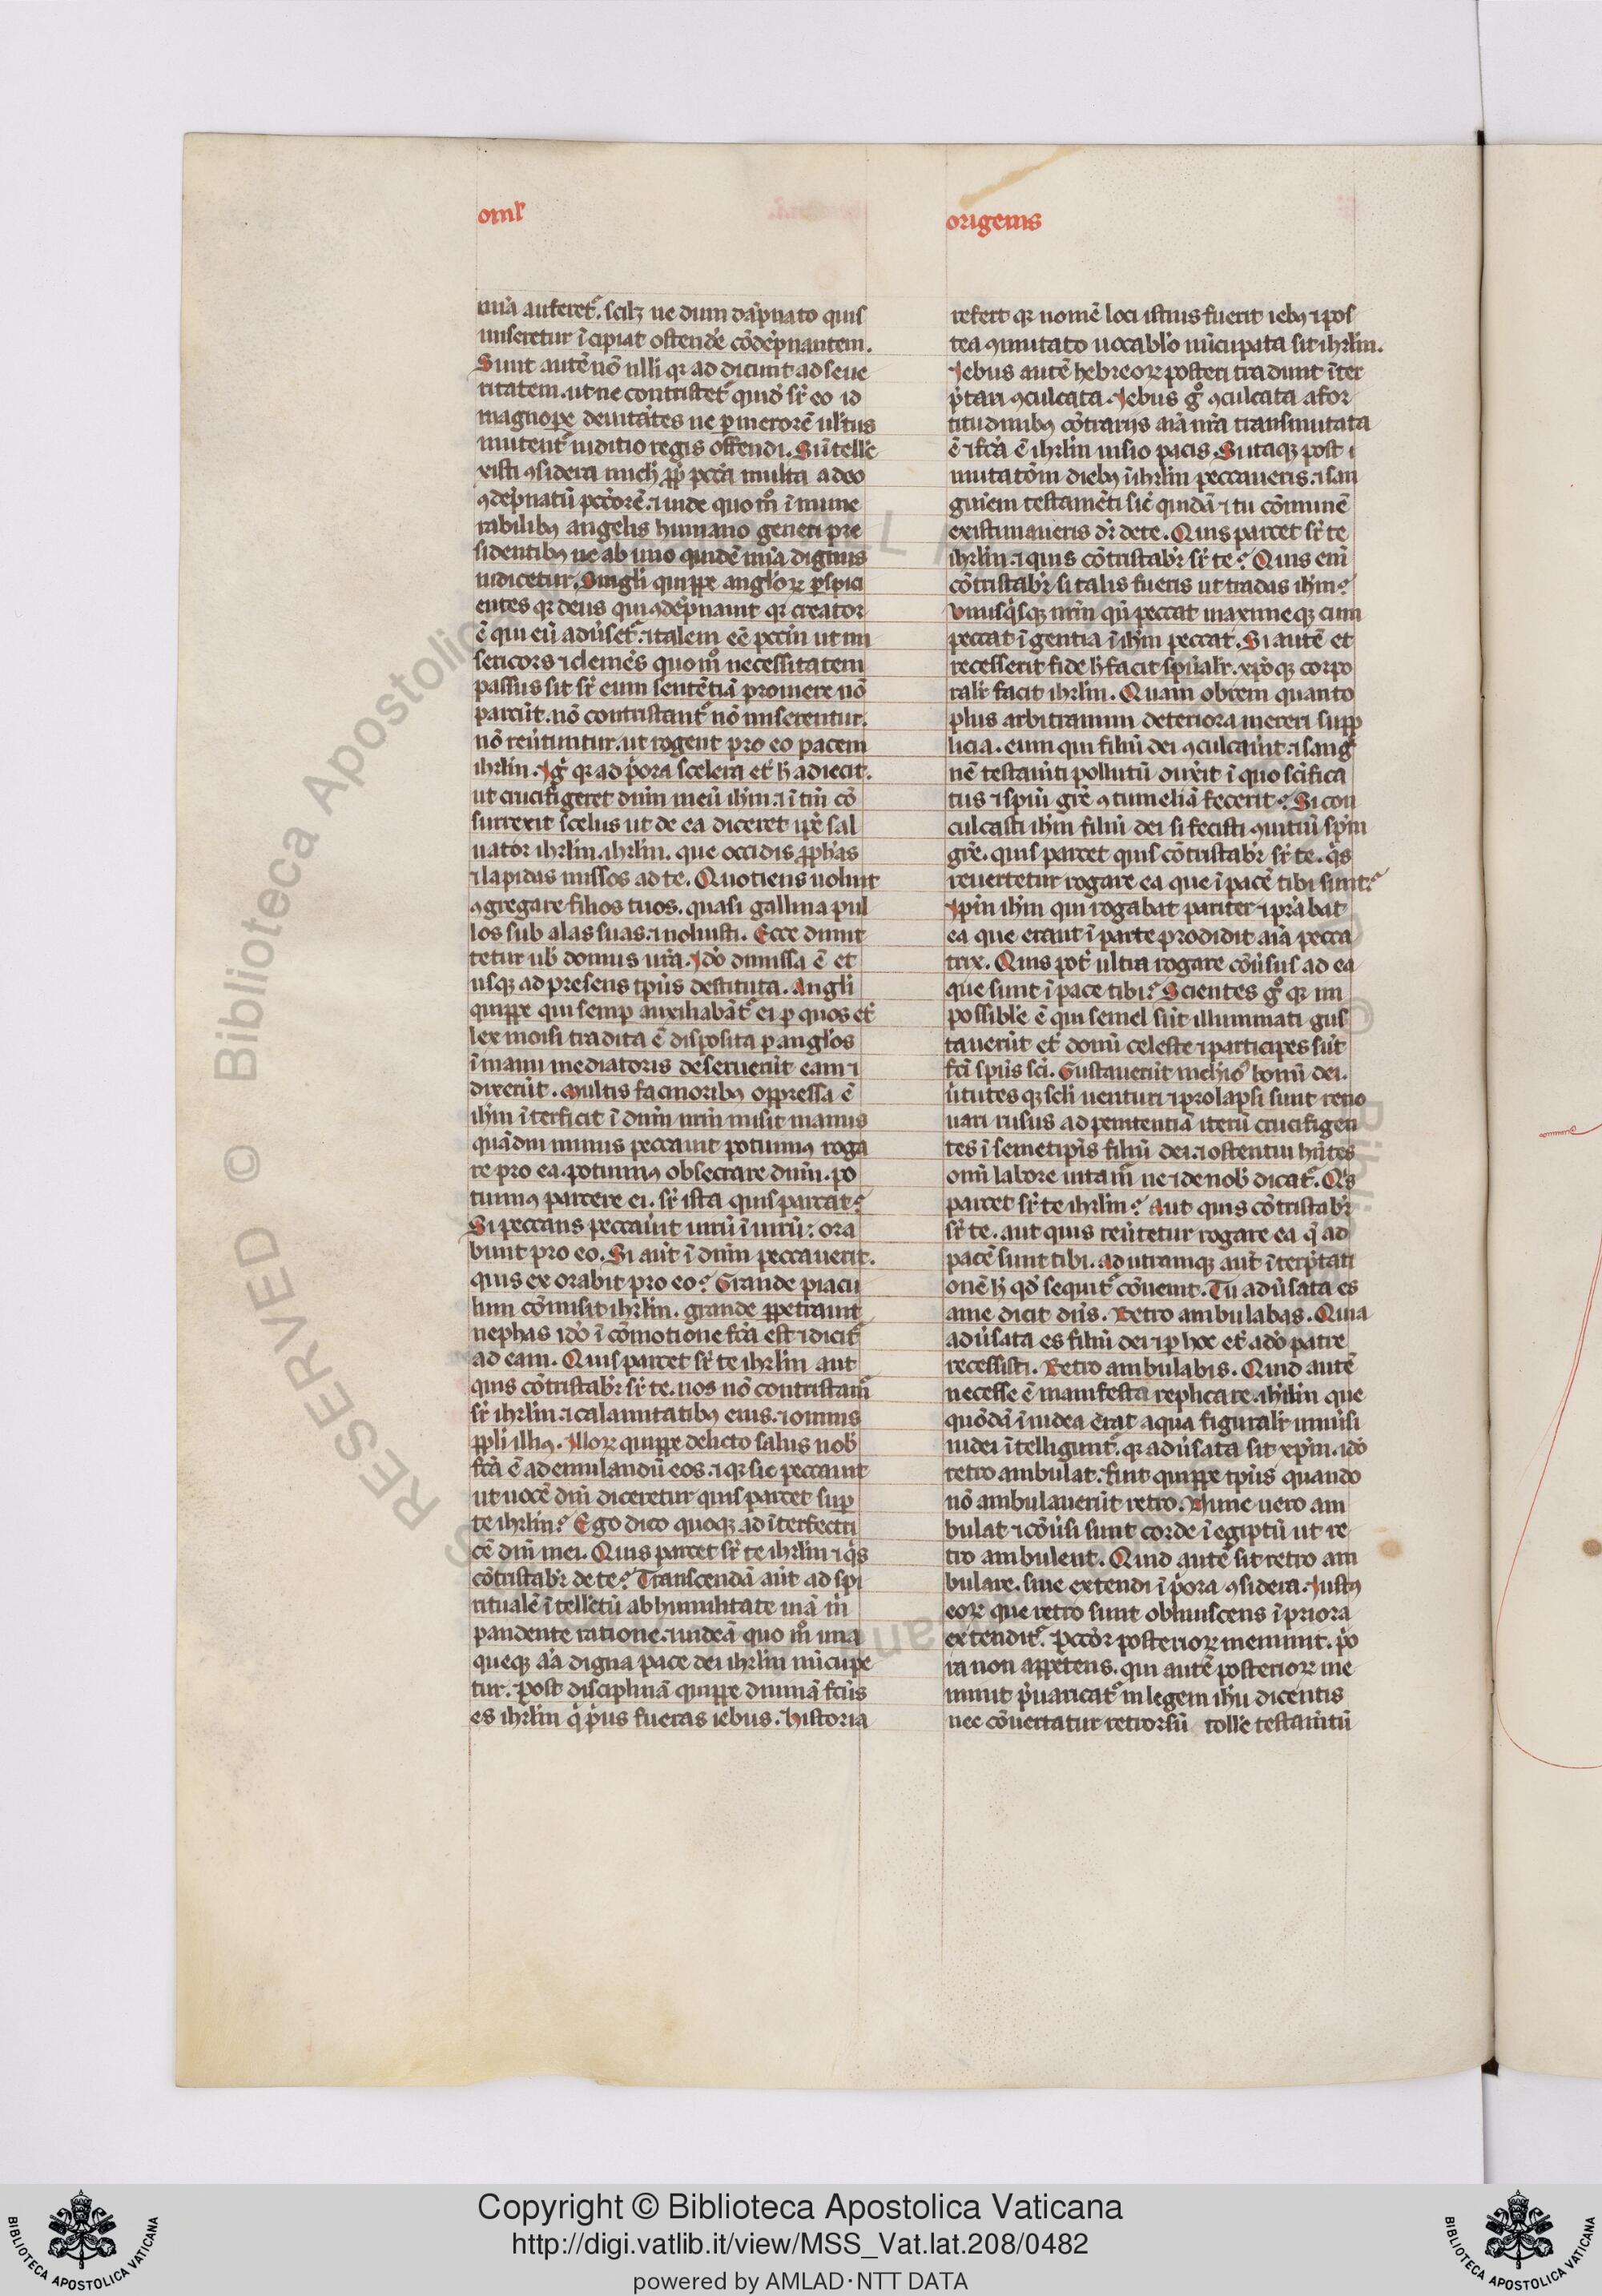 oml'
origenis
mīa auferetᷣ. scilꝫ ne dum dāpnato quis
misereatur īcipiat ostendē cōdēpnantem.
Sunt autē nō nlli qꝛ ad dicunt ad seue
ritatem. ut ne contristetᷣ quid sr̄ eo id
magnope deuitātes ne p merorē ul'tus
mutentᷣ iuditio regis offendi. Si ītelle
xisti ꝯsidera mich ꝓp pctā multa a deo
ꝯdēpnatū pctōrē. ⁊ uide quo mº ī nume
rabilibꝰ angelis humano generi pre
sidentibꝰ ne ab uno quidē mīa dignus
iudicetur. Singl'i quippe angl'oꝝ pspici
entes qꝛ deus qui ꝯdēpnauit qꝛ creator
ē qui eū aduˀsetᷣ. ⁊ talem eē pctm̄ ut mi
sericors ⁊ clemēs quo mº necessitatem
passus sit sr̄ eum sentētiā promere nō
parcūt. nō contristantᷣ nō miserentur.
nō reūtuntur. ut rogent pro eo pacem
ihrl'm. Igͥ qꝛ ad p̄ora scelera et̄ h̄ adiecit.
ut crucifigeret dn̄m meū ih̄m. ⁊ ī tm̄ cō
surrexit scelus ut de ea diceret ip̄e sal
uator ihrl'm. ihrl'm. que occidis ꝓph'as
⁊ lapidas missos ad te. Quotiens uolui
ꝯgregare filios tuos. quasi gallina pul
los sub alas suas. ⁊ noluisti. Ecce dimit
tetur ub̄ domus ur̄a. Idō dimissa ē et
usqꝫ ad presens tp̄us destituta. Angl'i
quippe qui semp auxiliabātᷣ ei p quos et̄
lex moisi tradita ē disposita p angl'os
ī manu mediatoris deseruerūt eam ⁊
dixerūt. Multis facinoribꝰ oppressa ē
ih̄m īterficit ī dn̄m nr̄m misit manus
quādiu minus peccauit potuimꝰ roga
re pro ea. potuimꝰ obsecrare dn̄m. po
tuimꝰ parcere ei. sr̄ ista quis parcat?
Si peccans peccauˀit uirū ī uirū: ora
bunt pro eo. Si aūt ī dn̄m peccauerit.
quis ex orabit pro eo? Grande piacu
lum cōmisit ihrl'm. grande ppetrauit
nephas idō ī cōmotione fctā est ⁊ dicitᷣ
ad eam. Quis parcet sr̄ te ihrl'm aut
quis cōtristabr̄ sr̄ te. nos nō contristam̄
sr̄ ihrl'm. ⁊ calamitatibꝰ eius. ⁊ omnis
ppl'i illiꝰ. Illoꝝ quippe delicto salus nob̄
fctā ē ad emulandū eos. ⁊ qꝛ sic peccauit
ut uocē dn̄i diceretur quis parcet sup
te ihrl'm? Ego dico quoqꝫ ad īterfectri
cē dn̄i mei. Quis parcet sr̄ te ihrl'm ⁊ qͥs
cōtristabr̄ de te? Transcendā aūt ad spi
ritualē ītell'ctū ab humilitate mā m̄
pandente ratione. ⁊ uideā quo mº una
queqꝫ aīa digna pace dei ihrl'm nūcupe
tur. Post disciplinā quippe diuinā fctūs
es ihrl'm qͥ p̄us fueras iebus. Historia
refert qꝛ nomē loci istius fuerit iebꝰ ⁊ pos
tea ꝯmutato uocabl'o nūcupata sit ihrl'm.
Iebus autē hebreoꝝ posteri tradunt īter
p̄tari ꝯculcata. Iebus gº ꝯculcata a for
titudinibꝰ cōtrariis aīa nr̄a transmutata
ē ⁊ fctā ē ihrl'm uisio pacis. Si itaqꝫ post ī
mutatōm diebꝰ ī ihrl'm peccaueris. ⁊ san
guinem testamēti sic̄ quidā ⁊ tu cōmunē
existimaueris dr̄ de te. Quis parcet sr̄ te
ihrl'm. ⁊ quis cōtristabr̄ sr̄ te? Quis eni
cōtristabr̄ si talis fueris ut tradas ih̄m?
Vnusqͥsqꝫ nr̄m qn̄ peccat maximeqꝫ cum
peccat īgentia ī ih̄m peccat. Si autē et
recesserit fide h̄ facit spūalr̄. xp̄oqꝫ corpo
ralr̄ facit ihrl'm. Quam obrem quanto
plus arbitramini deteriora mereri supp
licia. eum qui filiū dei ꝯculcauˀit. ⁊ sangͥ
nē testam̄ti pollutū dux̄it ī quo sc̄ifica
tus ⁊ spūi gr̄e ꝯtumeliā fecerit? Si con
culcasti ih̄m filiū dei si fecisti ꝯuitiū sp̄m
gr̄e. quis parcet quis cōtristabr̄ sr̄ te. qͥs
reuertetur rogare ea que ī pacē tibi sunt?
Ip̄m ih̄m qui rogabat pariter ⁊ pr̄abat
ea que erant ī parte prodidit aīa pecca
trix. Quis pot̄ ultra rogare cōuˀsus ad ea
que sunt ī pace tibi? Scientes gº qꝛ im
possibl'e ē qui semel sūt illuminati gus
tauerūt et̄ donū celeste ⁊ participes sūt
fct̄i sp̄us sc̄i. Gustauerūt nichiº bonū dei.
uˀtutes qꝫ scl'i uenturi ⁊ prolapsi sunt reno
uari rusus ad penitentiā iterū crucifigen
tes ī semetip̄is filiū dei. ⁊ ostentui hn̄tes
om̄i labore uitam̄ ne ⁊ de nob̄ dicatᷣ. Qͥs
parcet sr̄ te ihrl'm? Aut quis cōtristabr̄
sr̄ te. aut quis reūtetur rogare ea q̄ ad
pacē sunt tibi. ad utramqꝫ aūt īterp̄tati
onē h̄ qd̄ sequitᷣ cōuenit. Tu aduˀsata es
a me dicit dn̄s. Retro ambulabas. Quia
aduˀsata es filiū dei ⁊ p hoc et̄ a dō patre
recessisti. Retro ambulabis. Quid autē
necesse ē manifesta replicare. ihrl'm que
quōdā ī iudea erat aqua figuralr̄ inuisi
iudei ītelliguntᷣ. qꝛ aduˀsata sit xp̄m. idō
retro ambulat. fuit quippe tp̄us quando
nō ambulauerūt retro. Nunc uero am
bulat ⁊ cōuˀsi sunt corde ī egiptū ut re
tro ambulent. Quid autē sit retro am
bulare. siue extendi ī p̄ora ꝯsidera. Iustꝰ
eoꝝ que retro sunt obliuiscens ī priora
extenditᷣ. Pctōr posterioꝝ meminit. p̄o
ra non appetens. qui autē posterioꝝ me
minit p̄uaricatᷣ in legem ih̄u dicentis
nec cōuertatur retrorsū tolle testam̄tū
Copyright © Biblioteca Apostolica Vaticana
http://digi.vatlib.it/view/MSS_Vat.lat.208/0482
powered by AMLAD·NTT DATA